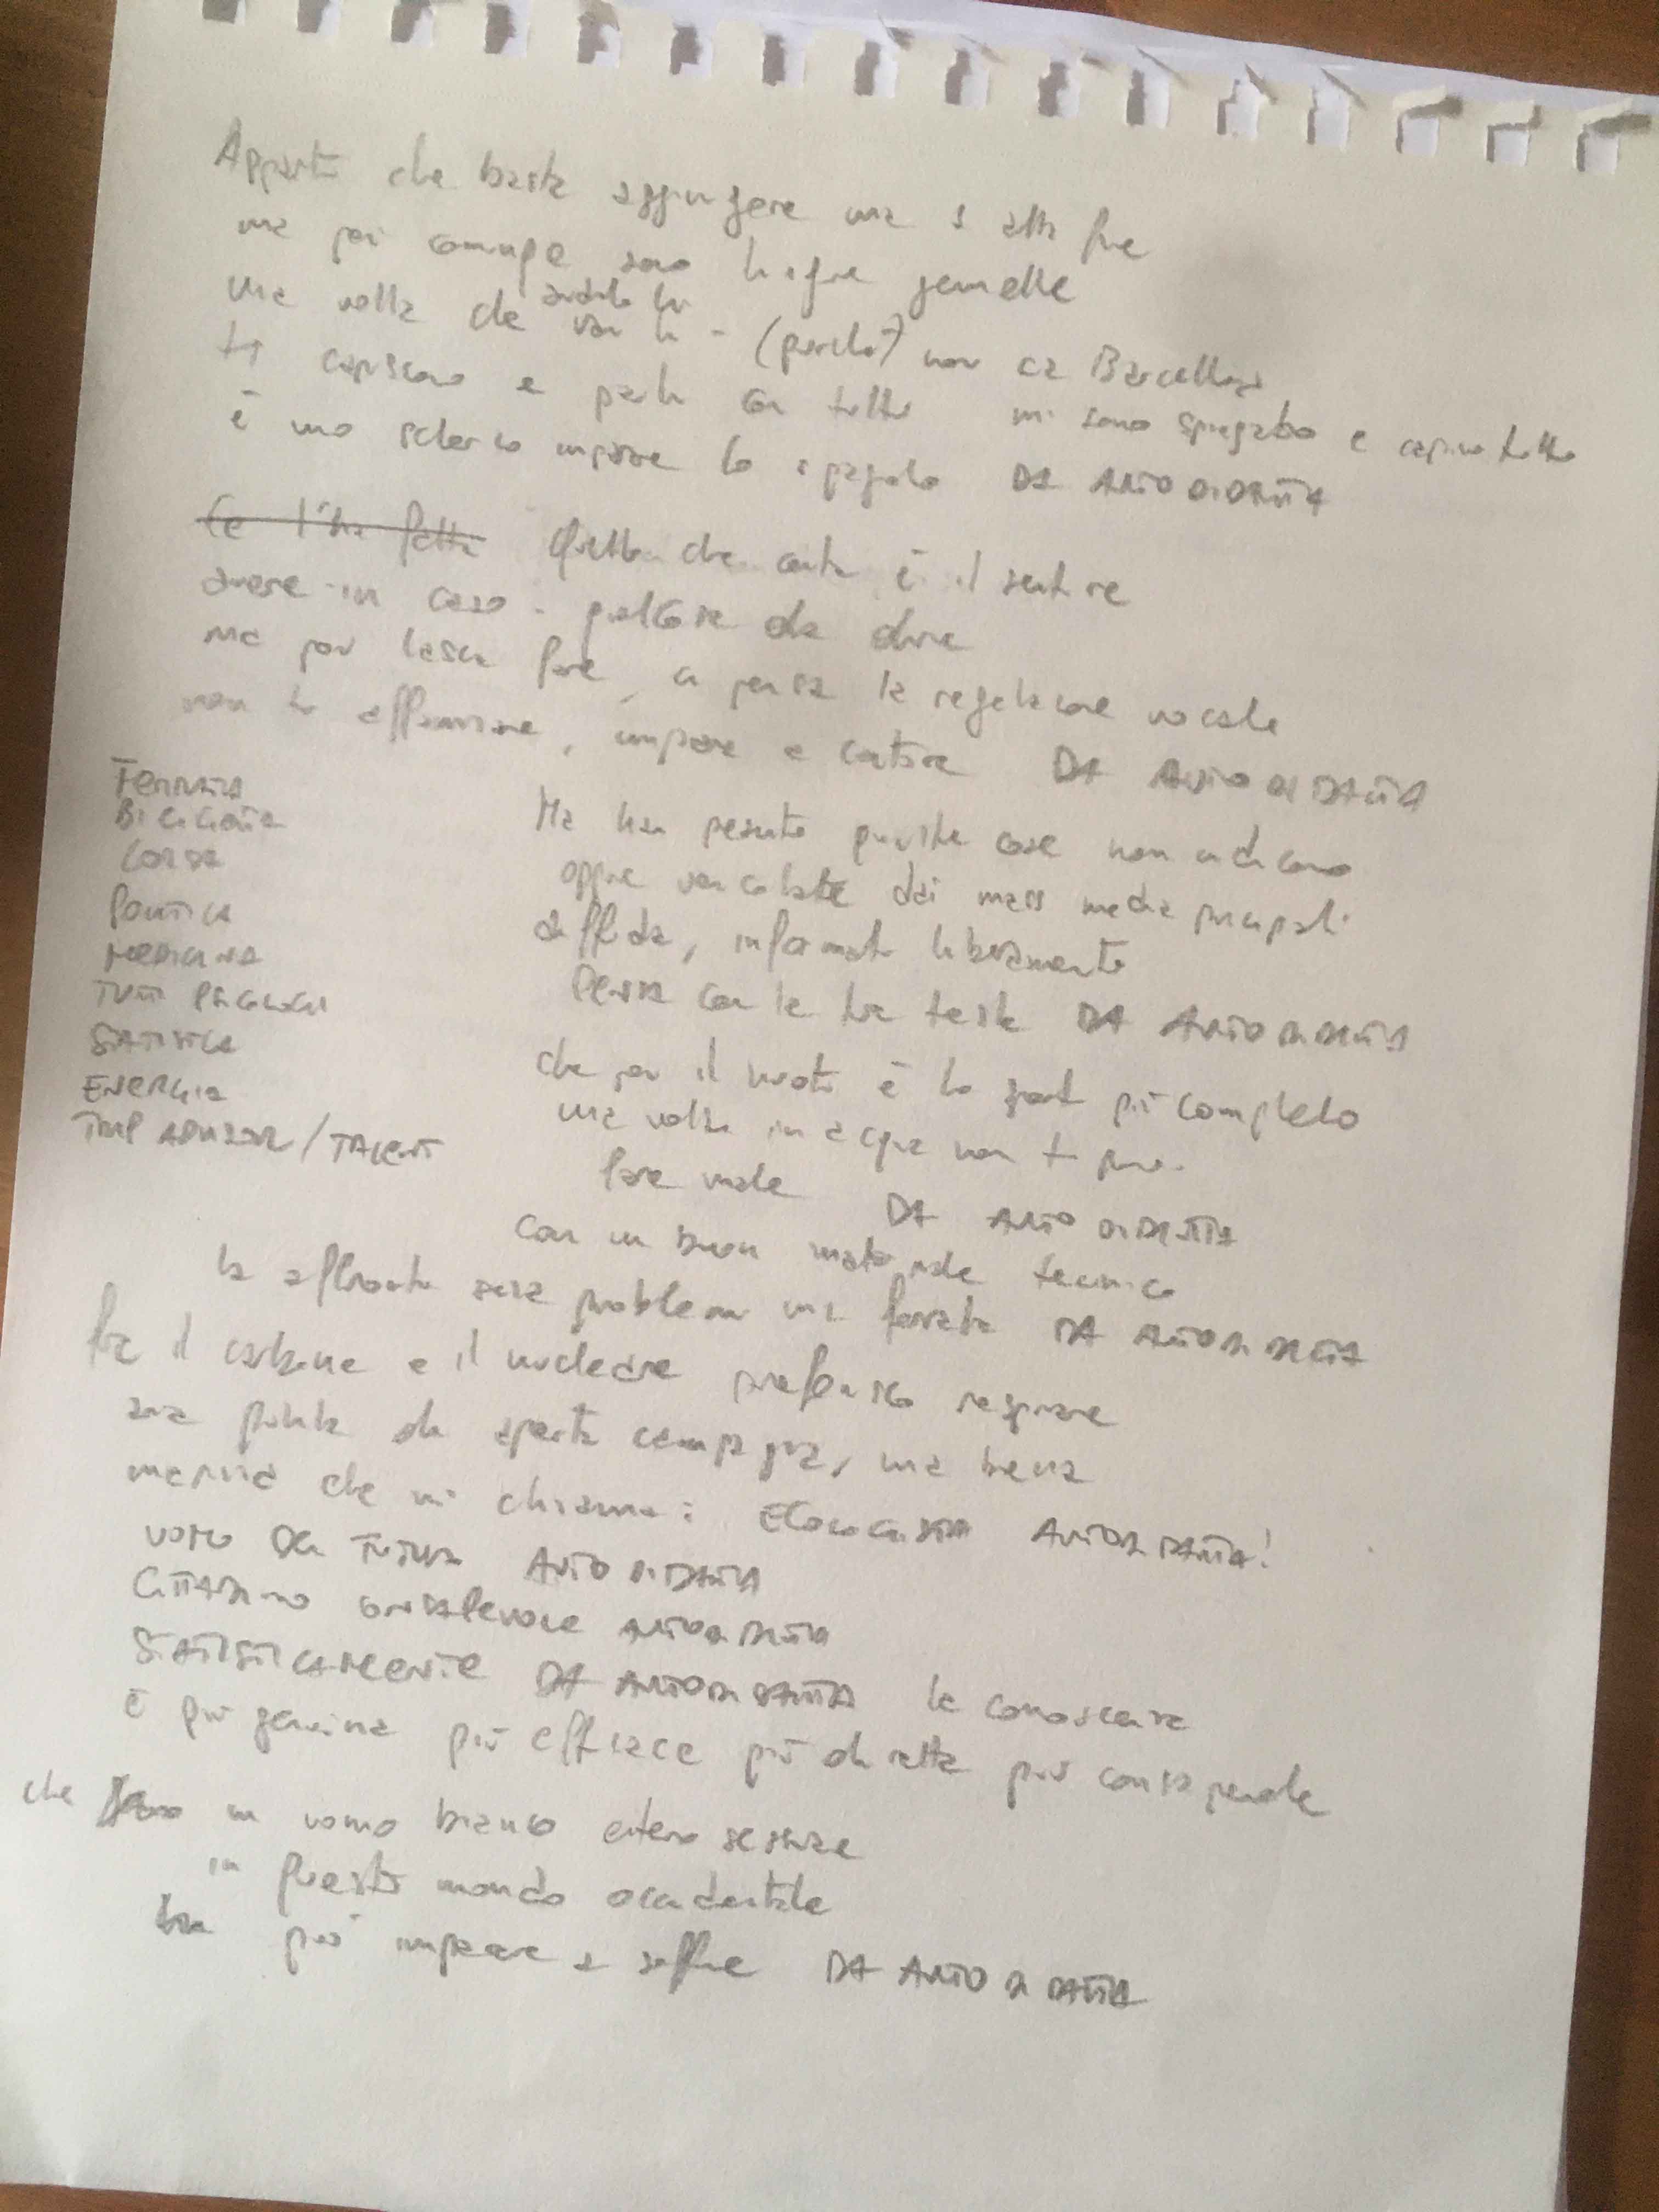 che basta aggiungere una s alla fine
ma poi comunque sono lingue gemelle
una volta che vai lì - (perché) non a Barcellona
andato lì
ti capiscono e parli con tutti mi sono spiegato e capivo tutto
è uno scherzo imparare lo spagnolo DA AUTODIDATTA
Ce l'ha fatta Quello che conta è il sentire
avere in caso - qualcosa da dire
ma poi lascia fare, ci pensa la regolazione vocale
non ti affannare, impara a cantare DA AUTODIDATTA
FERRATA
BICICLETTA
CORSA
POLITICA
MEDICINA
TUTTI PSICOLOGI
STATISTICA
ENERGIA
TRIP ADVISOR / TALENT
Ma hai pensato queste cose non ci dicono
oppure veicolate dai mass media principali
diffida, informati liberamente
Pensa con la tua testa DA AUTODIDATTA
che poi il nuoto è lo sport più completo
una volta in acqua non ti puoi
fare male DA AUTODIDATTA
Con un buon materiale tecnico
la affronto senza problemi una ferrata DA AUTODIDATTA
fra il carbone e il nucleare preferisco respirare
aria pulita di aperta campagna, una bella
che mi chiama: ECOLOGISTA AUTODIDATTA!
UOMO DI AUTODIDATTA
CITTADINO CONSAPEVOLE AUTODIDATTA
STATISTICAMENTE DA AUTODIDATTA la conoscenza
è più genuina più efficace più diretta più consapevole
che sono un uomo bianco eterosessuale
in questo mondo occidentale
può imparare a soffrire DA AUTODIDATTA